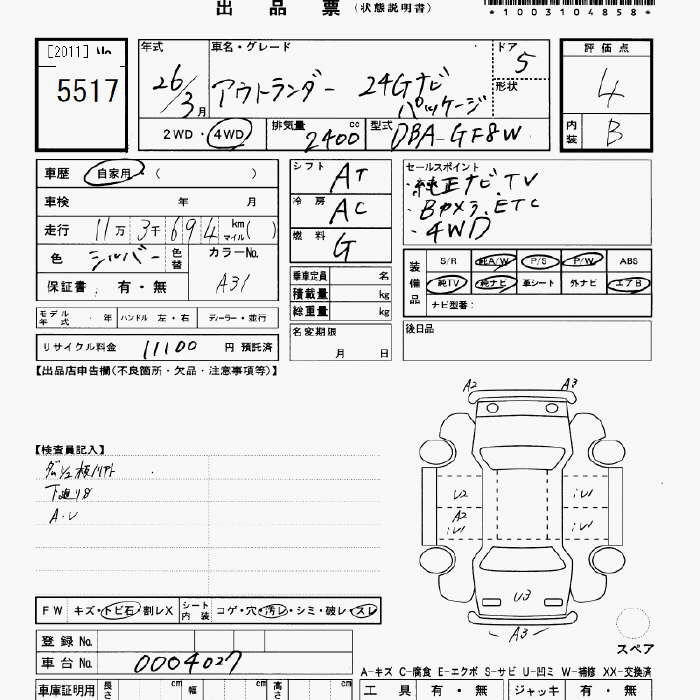 出品票（状態説明書）
*1003104858*
[2011] No
5517
年式 26/3月
車名・グレード アウトランダー 24Gナビパッケージ
ドア 5
形状
2WD・4WD 排気量 2400 cc 型式 DBA-GF8W
評価点 4
内装 B
車歴 自家用・（ ）
車検 年 月
走行 11万3千694 km マイル( )
色 シルバー 色替 カラーNo. A31
保証書：有・無
モデル年式 ・ 年 ハンドル 左・右 ディーラー・並行
リサイクル料金 11100 円 預託済
シフト AT
冷房 AC
燃料 G
乗車定員 名
積載量 kg
総重量 kg
名変期限 月 日
セールスポイント
・純正ナビ、TV
・Bカメラ、ETC
・4WD
装備品 S/R 純A/W P/S P/W ABS
純TV 純ナビ 革シート 外ナビ エアB
ナビ型番：
後日品
【出品店申告欄(不良箇所・欠品・注意事項等)】
【検査員記入】
下廻りS
A・U
A2 A3
U2 iU1
A2
iU1 iU1
U3
A3
スペア
FW キズ・トビ石・割レX シート内装 コゲ・穴・汚レ・シミ・破レ・スレ
登録 No.
車台 No. 0004027
A-キズ C-腐食 E-エクボ S-サビ U-凹ミ W-補修 XX-交換済
車庫証明用 長さ cm 幅 cm 高さ cm
工具 有・無 ジャッキ 有・無